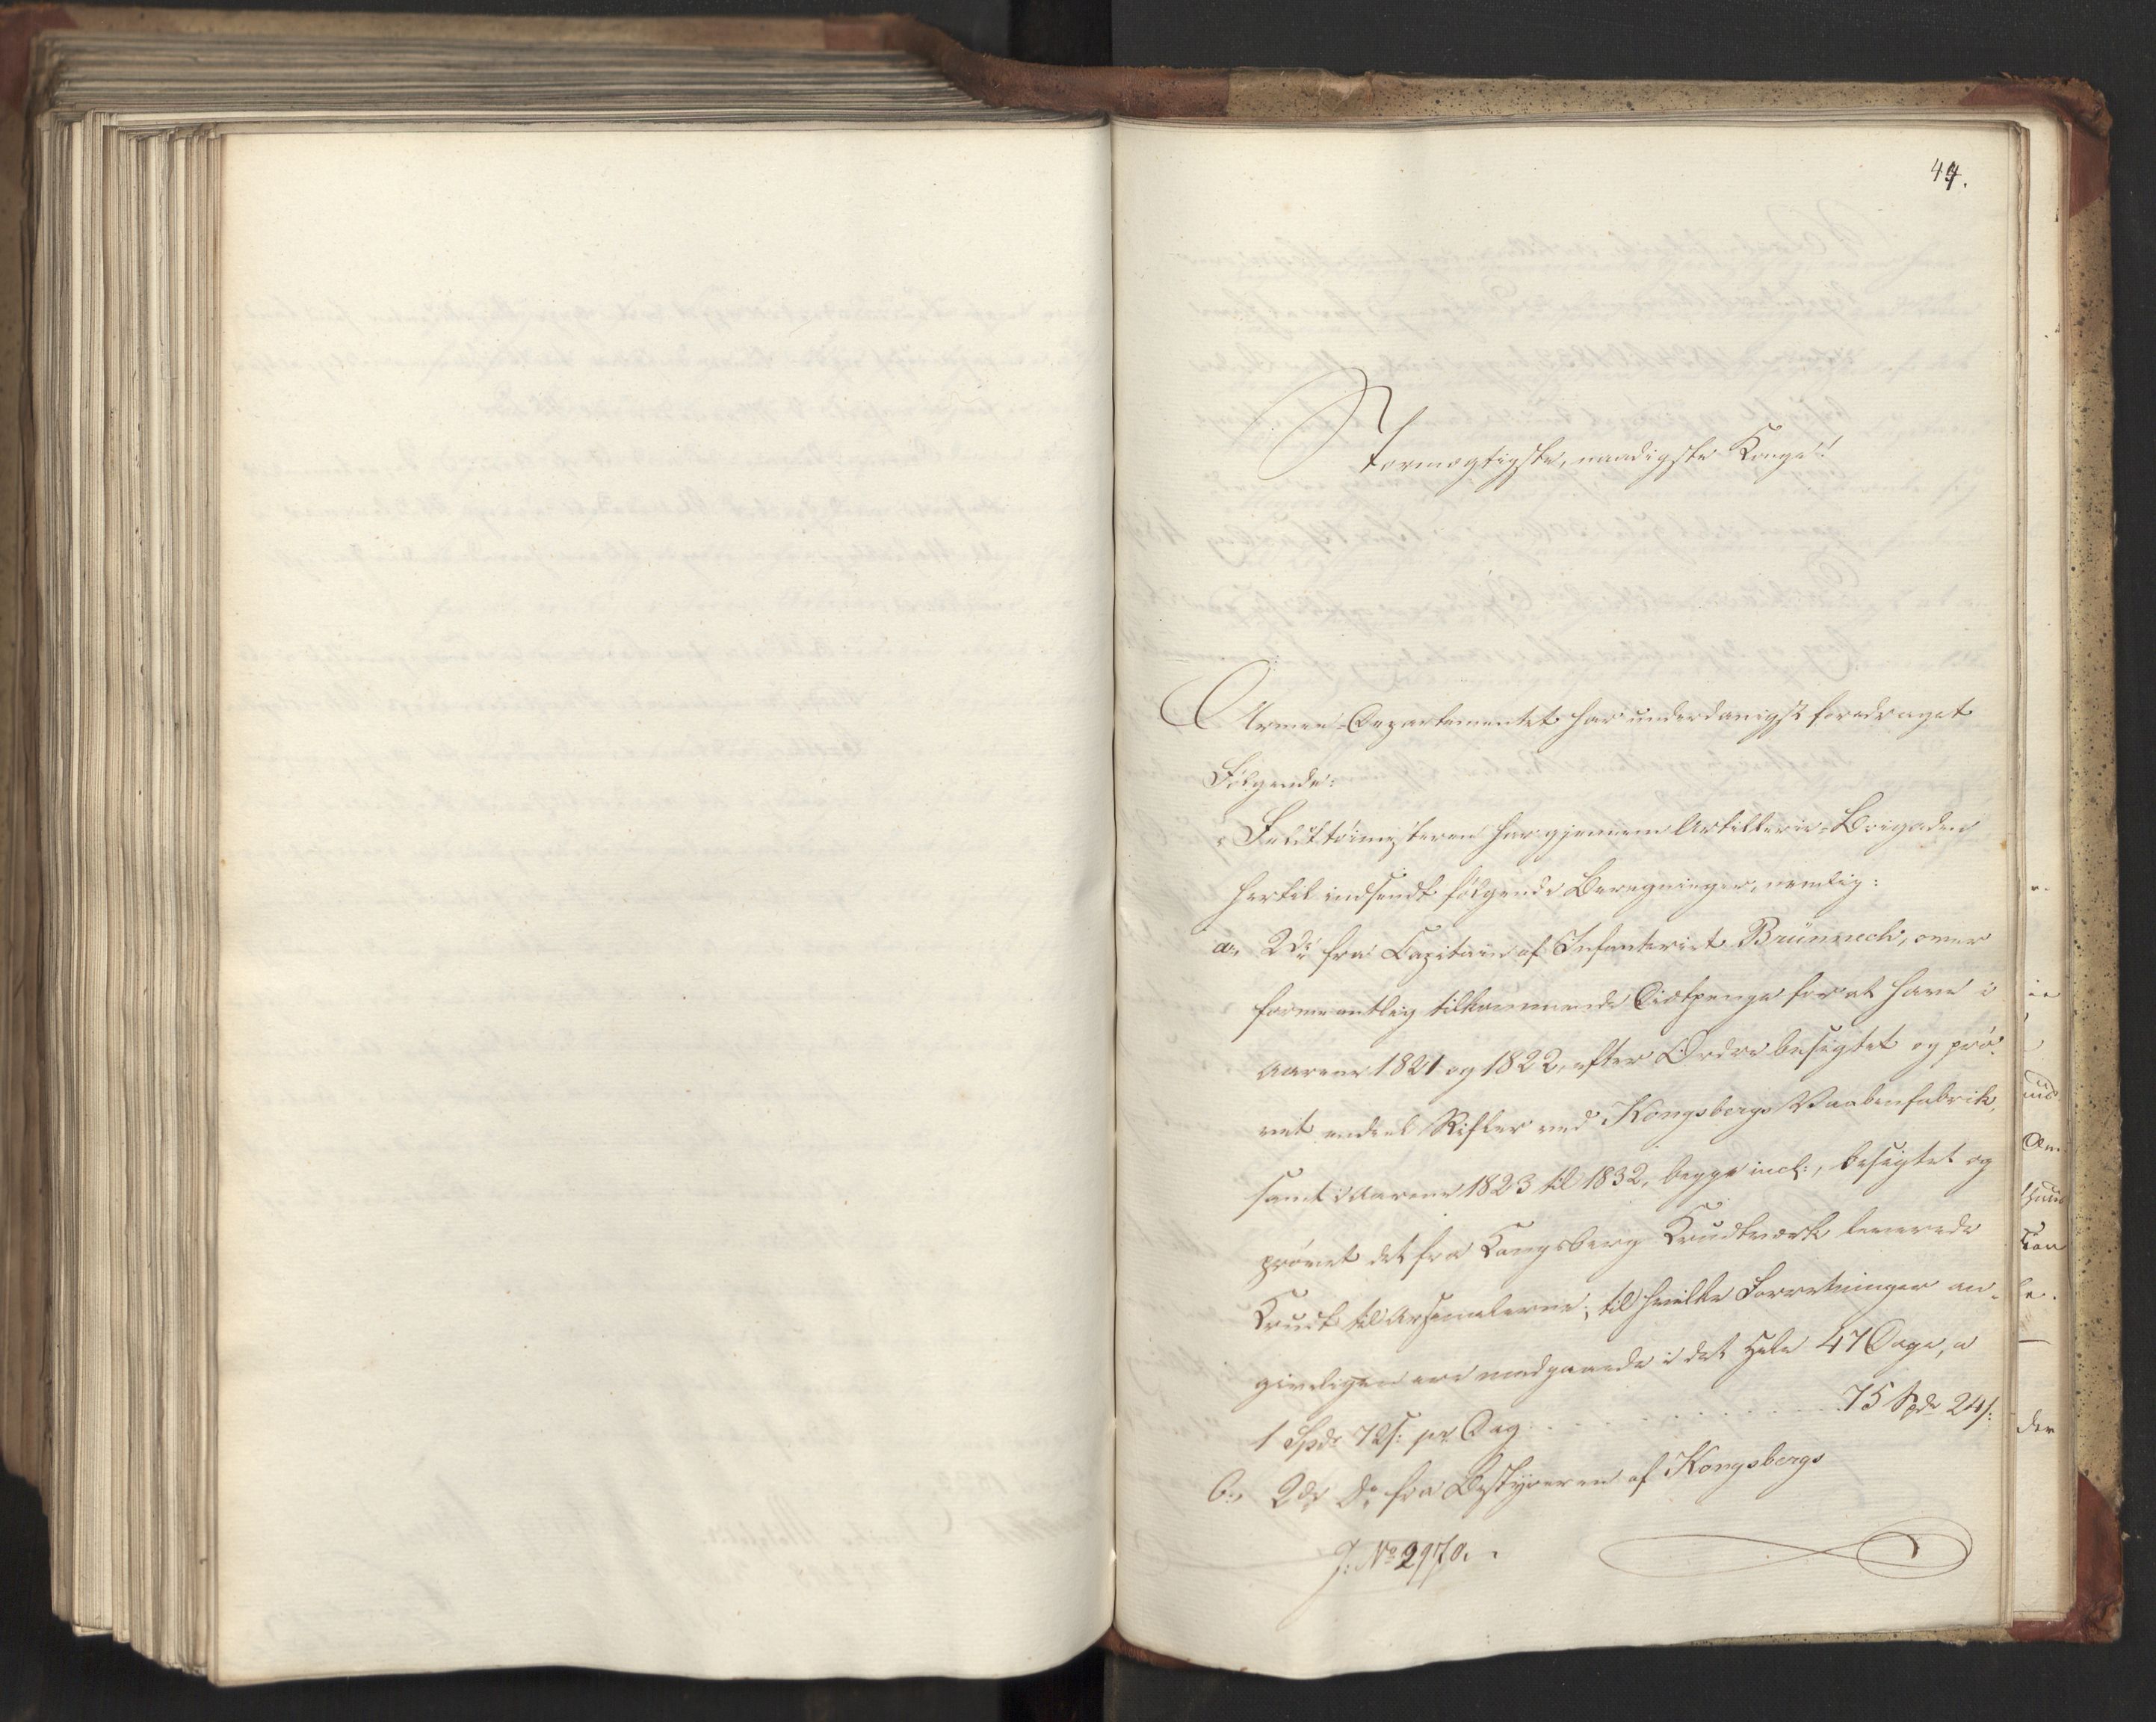 44.
Stormægtigste, naadigste Konge!
Armee-Departementet har underdanigst foredraget
Følgende:
„Felttøimesteren har gjennem Artillerie-Brigaden
hertil indsendt følgende Beregninger, nemlig:
a., 2de fra Capitain af Infanteriet Brünnech, over
formeentlig tilkommende Diætpenge for at have i
Aarene 1821 og 1822, efter Ordre besigtet og prø-
vet endeel Rifler ved Kongsbergs Vaabenfabrik,
samt i Aarene 1823 til 1832, begge incl:, besigtet og
prøvet det fra Kongsberg Krudtværk leverede
Krudt til Arsenalerne; til hvilke Forretninger an-
giveligen ere medgaaede i det Hele 47 Dage, a
1 Spd. 72 s: pr Dag . . . . . . . . . . 75 Spd 24 s:
b., 2de Do fra Bestyreren af Kongsbergs
J: No 2970.